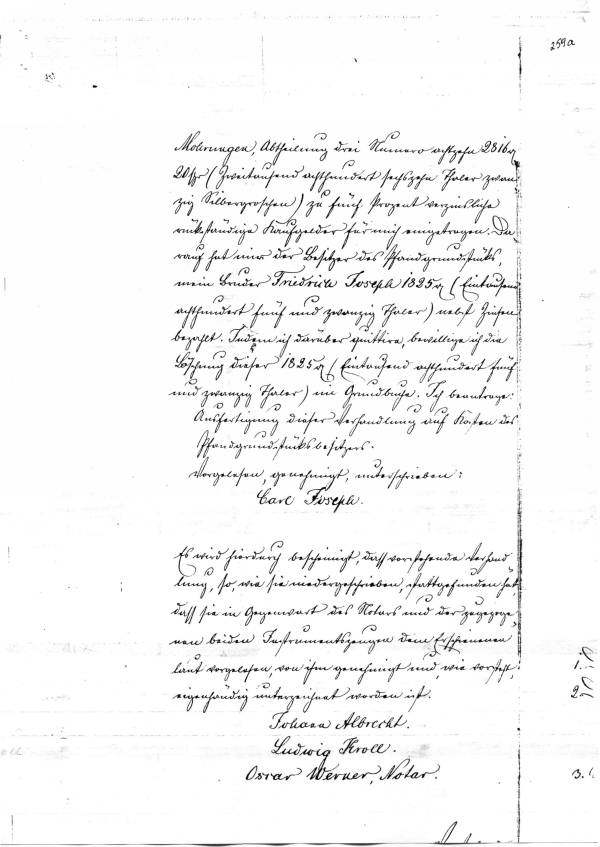 259a
Mohrungen, Abtheilung drei Numero achtzehn 2816 rt
20 sgr (Zweitausend achthundert sechszehn Thaler zwan-
zig Silbergroschen) zu fünf Prozent verzinsliche
rückständige Kaufgelder für mich eingetragen. Da-
rauf hat mir der Besitzer des Pfandgrundstücks,
mein Bruder Friedrich Joseph 1825 rt (Eintausend
achthundert fünf und zwanzig Thaler) nebst Zinsen
bezahlt. Indem ich darüber quittire, bewillige ich die
Löschung dieser 1825 rt (Eintausend achthundert fünf
und zwanzig Thaler) im Grundbuche. Ich beantrage:
Ausfertigung dieser Verhandlung auf Kosten des
Pfandgrundstücksbesitzers.
Vorgelesen, genehmigt, unterschrieben:
Carl Joseph.
Es wird hierdurch bescheinigt, dass vorstehende Verhand-
lung, so, wie sie niedergeschrieben, stattgefunden hat,
dass sie in Gegenwart des Notars und der zugezoge-
nen beiden Instrumentszeugen dem Erschienenen
laut vorgelesen, von ihm genehmigt und, wie vorsteht,
eigenhändig unterzeichnet worden ist.
Johann Albrecht.
Ludwig Kroll.
Oscar Werner, Notar.
1.
2.
3.